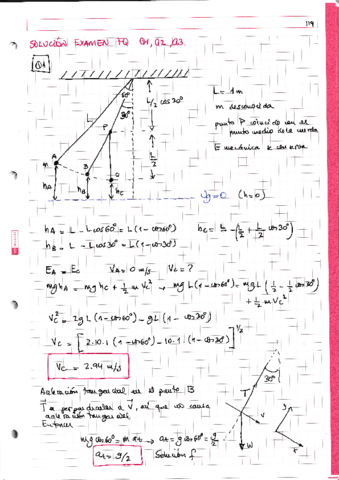 119
SOLUCIÓN EXAMEN FQ Q1, Q2, Q3
Q1
60°
30°
L
L/2 cos30°
P
L/2
A
M
B
C
hA
hB
hC
L = 1m
m desconocida
punto P coincide con el
punto medio de la cuerda
E mecánica se conserva
U=0 (h=0)
hA = L - L cos60° = L(1-cos60°)
hC = L - (L/2 + L/2 cos30°)
hB = L - L cos30° = L(1-cos30°)
EA = EC VA = 0 m/s VC = ?
mghA = mghC + 1/2 m VC² → mgL(1-cos60°) = mgL(1/2 - 1/2 cos30°)
+ 1/2 m VC²
VC² = 2gL(1-cos60°) - gL(1-cos30°)
VC = [2·10·1(1-cos60°) - 10·1·(1-cos30°)]^1/2
VC = 2.94 m/s
Aceleración tangencial en el punto B
T es perpendicular a V, así que no causa
aceleración tangencial.
Entonces
mg cos60° = m at → at = g cos60° = g/2
at = g/2
Solución f
30°
T
V
W
y
x